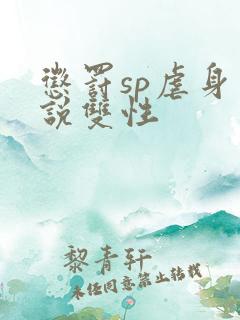 懲罰sp虐身
說雙性
黎青軒
未经同意禁止转载